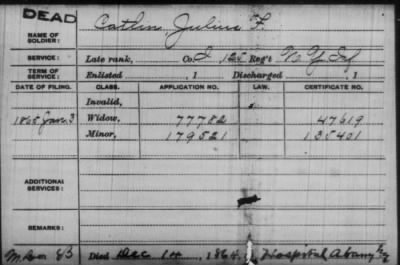 DEAD
NAME OF SOLDIER: Catlin, Julius F.
SERVICE: Late rank, Co. I, 125 Reg't N.Y. Inf
TERM OF SERVICE: Enlisted , 1 Discharged , 1
DATE OF FILING. CLASS. APPLICATION NO. LAW. CERTIFICATE NO.
Invalid,
1865 Jan. 3 Widow, 77782 47619
Minor, 179521 135401
ADDITIONAL SERVICES:
REMARKS:
Died Dec 14, 1864, Hospital Abany NY